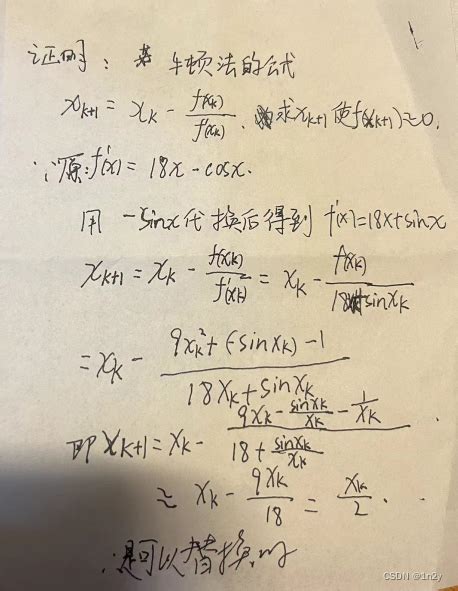 证明: 牛顿法的公式
x_{k+1} = x_k - \frac{f(x_k)}{f'(x_k)}. 求x_{k+1}使f(x_{k+1})≈0.
∵原: f'(x) = 18x - cosx.
用 -sinx代换后得到 f'(x)=18x+sinx
x_{k+1} = x_k - \frac{f(x_k)}{f'(x_k)} = x_k - \frac{f(x_k)}{18 + sinx_k}
= x_k - \frac{9x_k^2 + (-sinx_k) - 1}{18x_k + sinx_k}
即 x_{k+1} = x_k - \frac{9x_k - \frac{sinx_k}{x_k} - \frac{1}{x_k}}{18 + \frac{sinx_k}{x_k}}
≈ x_k - \frac{9x_k}{18} = \frac{x_k}{2}.
∴是可以替换的
CSDN @1n2y